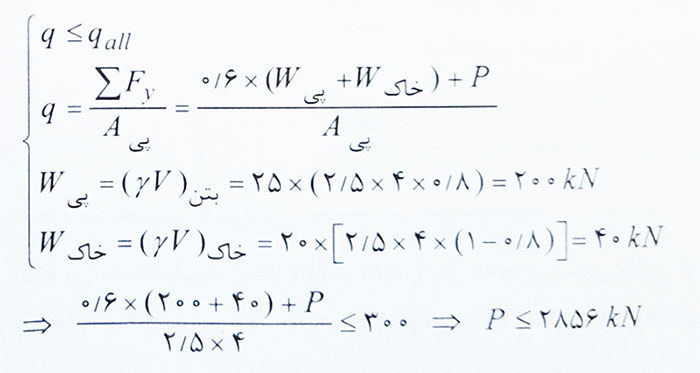 q ≤ q all
q = ∑F y / A پی = ۰/۶ × (W پی + W خاک) + P / A پی
W پی = (γV) بتن = ۲۵ × (۲/۵ × ۴ × ۰/۸) = ۲۰۰ kN
W خاک = (γV) خاک = ۲۰ × [۲/۵ × ۴ × (۱ − ۰/۸)] = ۴۰ kN
⇒ ۰/۶ × (۲۰۰ + ۴۰) + P / ۲/۵ × ۴ ≤ ۳۰۰ ⇒ P ≤ ۲۸۵۶ kN